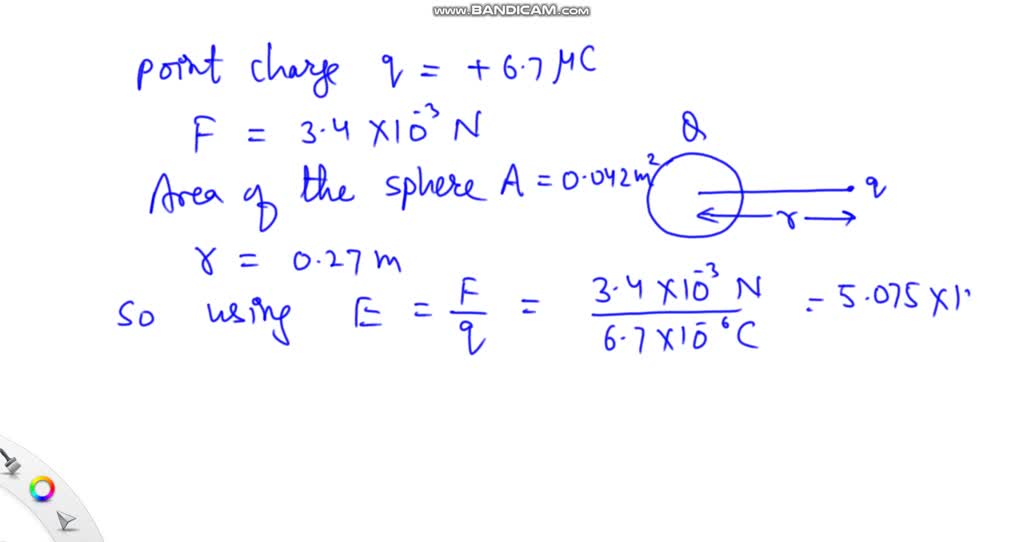 www.BANDICAM.com
point charge q = + 6.7 μC
F = 3.4 × 10⁻³ N
Q
Area of the sphere A = 0.042 m²
q
r
r = 0.27 m
So using E = F/q = 3.4 × 10⁻³ N / 6.7 × 10⁻⁶ C = 5.075 × 1